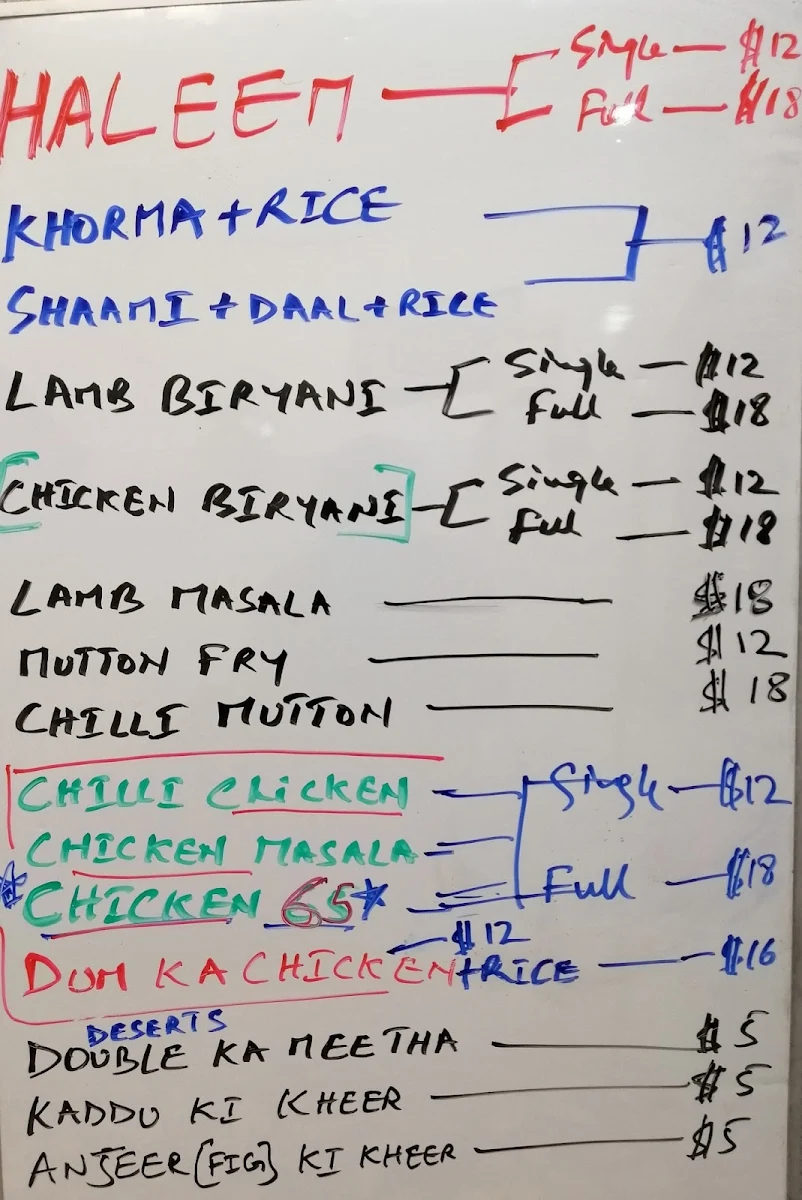 HALEEM Single — $12
Full — $18
KHORMA + RICE
$12
SHAAMI + DAAL + RICE
LAMB BIRYANI Single — $12
Full — $18
[CHICKEN BIRYANI] Single — $12
Full — $18
LAMB MASALA — $18
MUTTON FRY — $12
CHILLI MUTTON — $18
CHILLI CHICKEN Single — $12
CHICKEN MASALA
*CHICKEN 65* Full — $18
$12
DUM KA CHICKEN + RICE — $16
DESERTS
DOUBLE KA MEETHA — $5
KADDU KI KHEER — $5
ANJEER [FIG] KI KHEER — $5